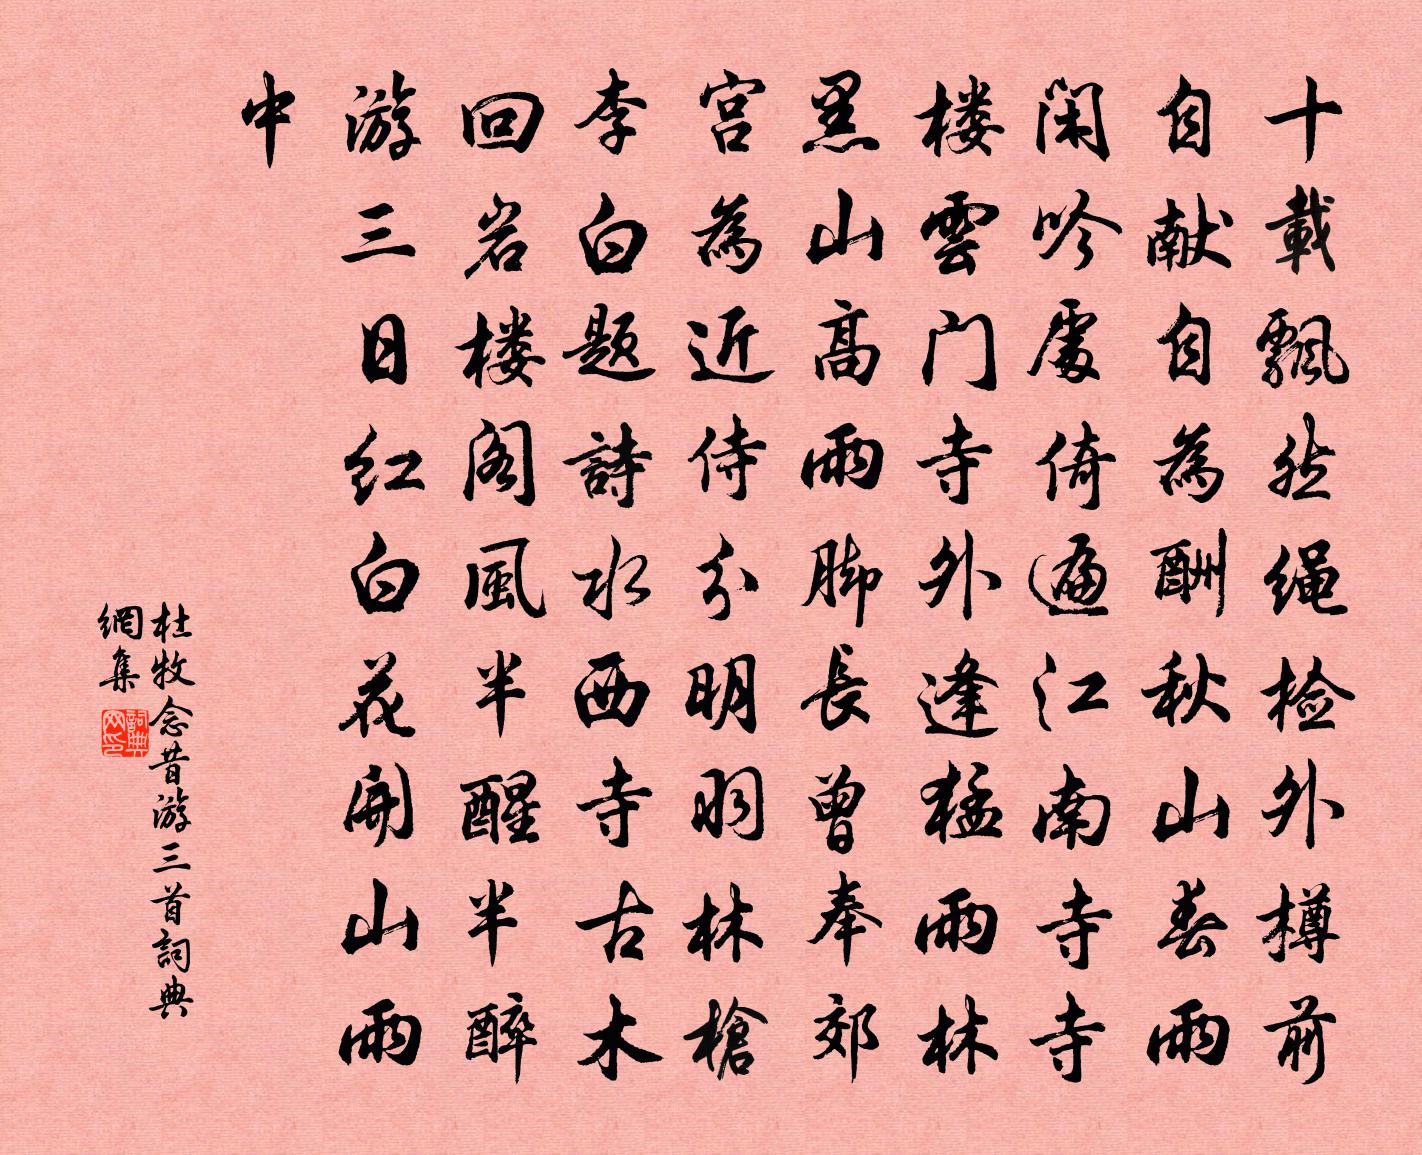 十載飄然绳检外樽前
自献自為酬秋山春雨
闲吟處倚遍江南寺寺
楼雲门寺外逢猛雨林
黑山高雨脚長曾奉郊
宫為近侍分明㧐林槍
李白题詩水西寺古木
回岩楼阁風半醒半醉
游三日红白花開山雨
中
杜牧念昔游三首詞典
網集
詞典网印